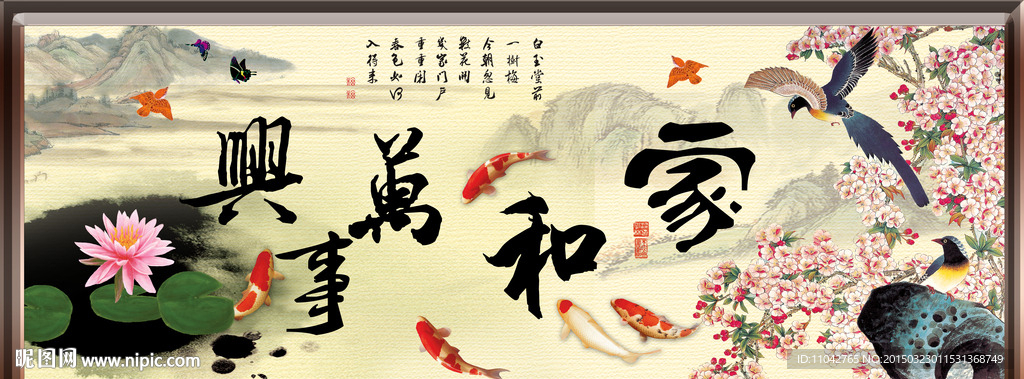 家和萬事興
白玉堂前
一樹梅
今朝忽見
數花開
幾家門戶
重重閉
春色如何
入得來
昵图网 www.nipic.com
ID:11042765 NO:20150323011531368749